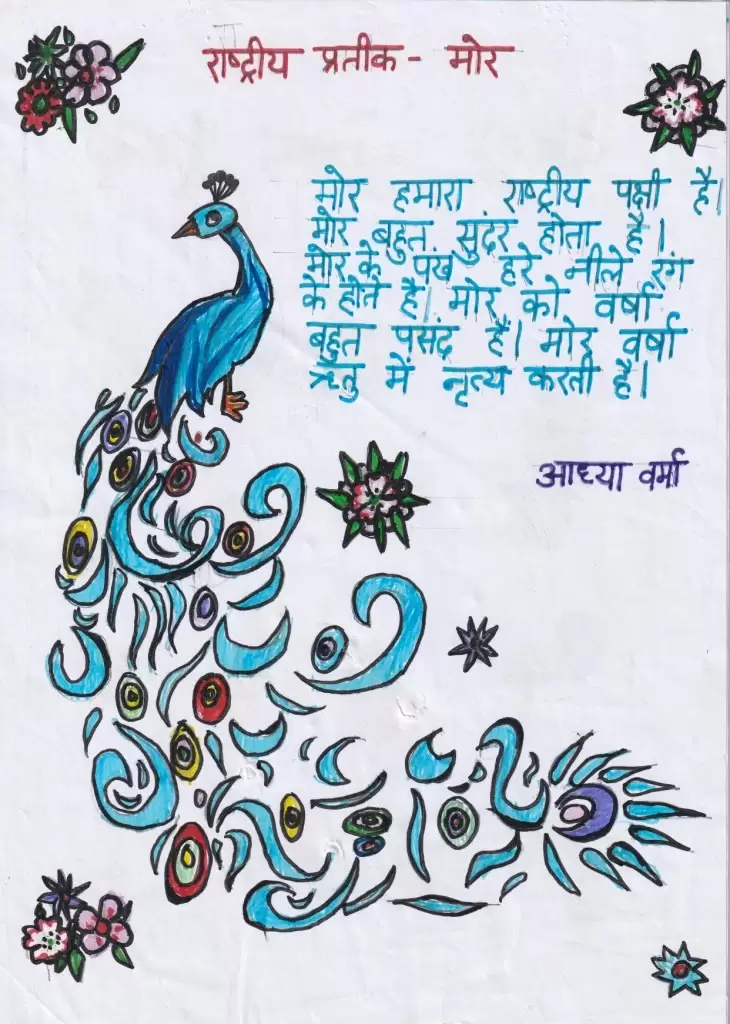 राष्ट्रीय प्रतीक - मोर
मोर हमारा राष्ट्रीय पक्षी है।
मोर बहुत सुंदर होता है।
मोर के पंख हरे नीले रंग
के होते है। मोर को वर्षा
बहुत पसंद है। मोर वर्षा
ऋतु में नृत्य करती है।
आध्या वर्मा